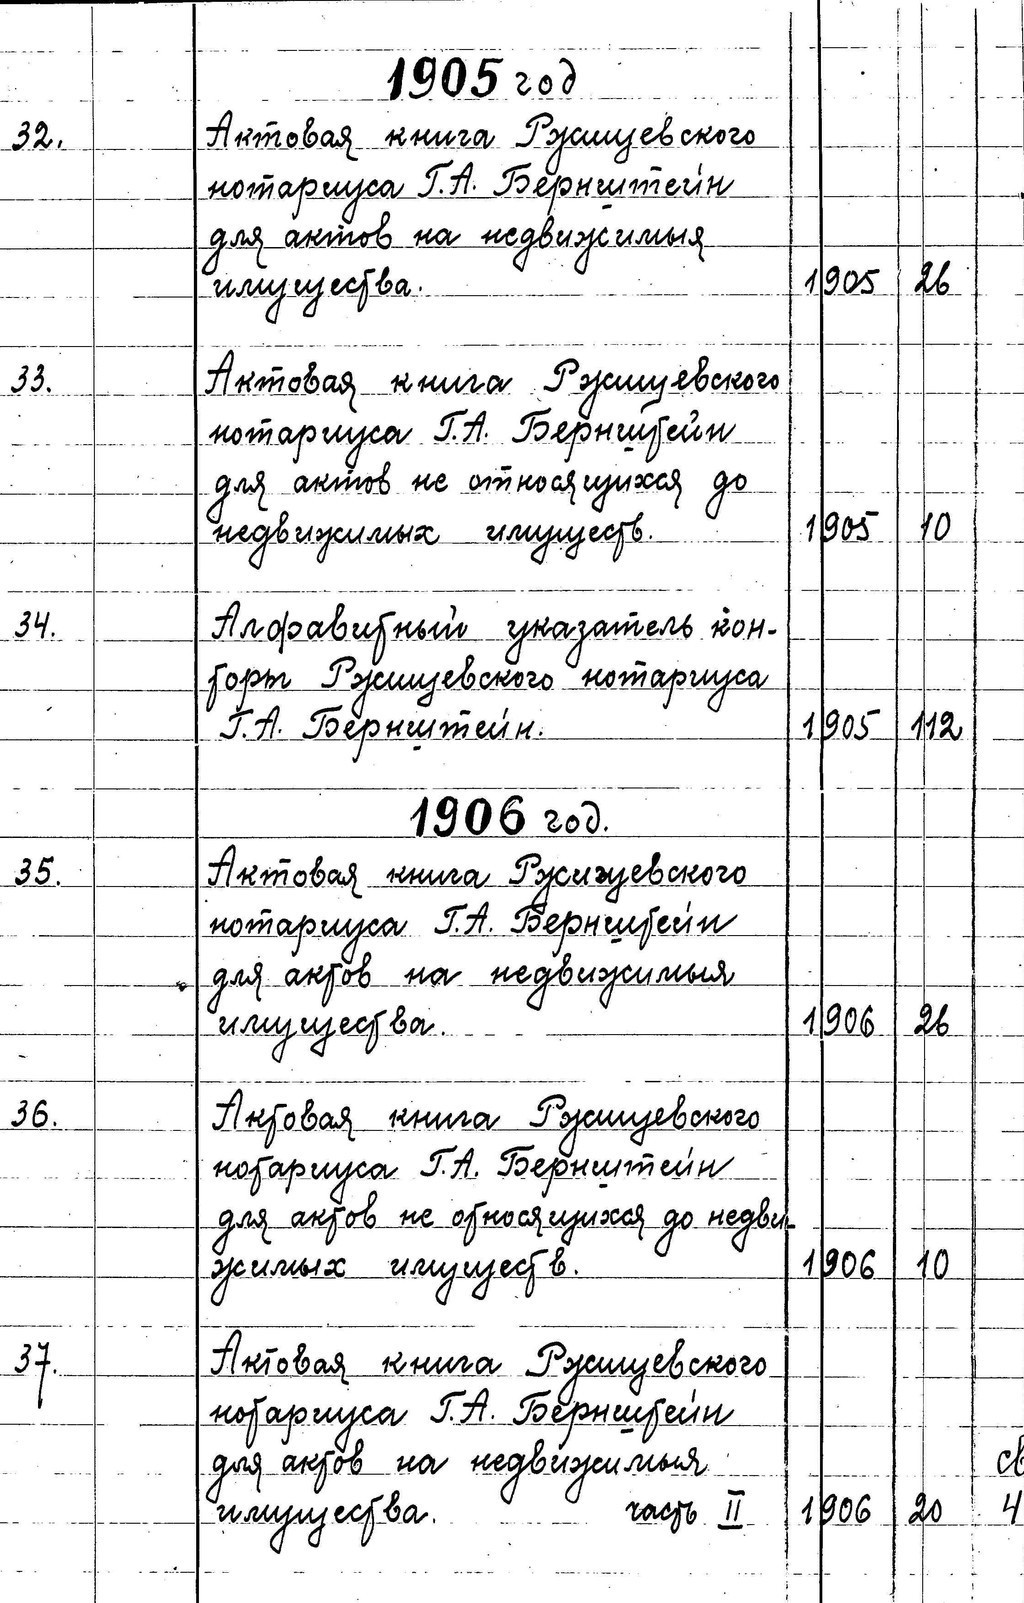 1905 год
32. Актовая книга Ржищевского
нотариуса Г.А. Бернштейн
для актов на недвижимыя
имущества. 1905 26
33. Актовая книга Ржищевского
нотариуса Г.А. Бернштейн
для актов не относящихся до
недвижимых имуществ. 1905 10
34. Алфавитный указатель кон-
торы Ржищевского нотариуса
Г.А. Бернштейн. 1905 112
1906 год.
35. Актовая книга Ржищевского
нотариуса Г.А. Бернштейн
для актов на недвижимыя
имущества. 1906 26
36. Актовая книга Ржищевского
нотариуса Г.А. Бернштейн
для актов не относящихся до недви-
жимых имуществ. 1906 10
37. Актовая книга Ржищевского
нотариуса Г.А. Бернштейн
для актов на недвижимыя св
имущества. часть II 1906 20 4